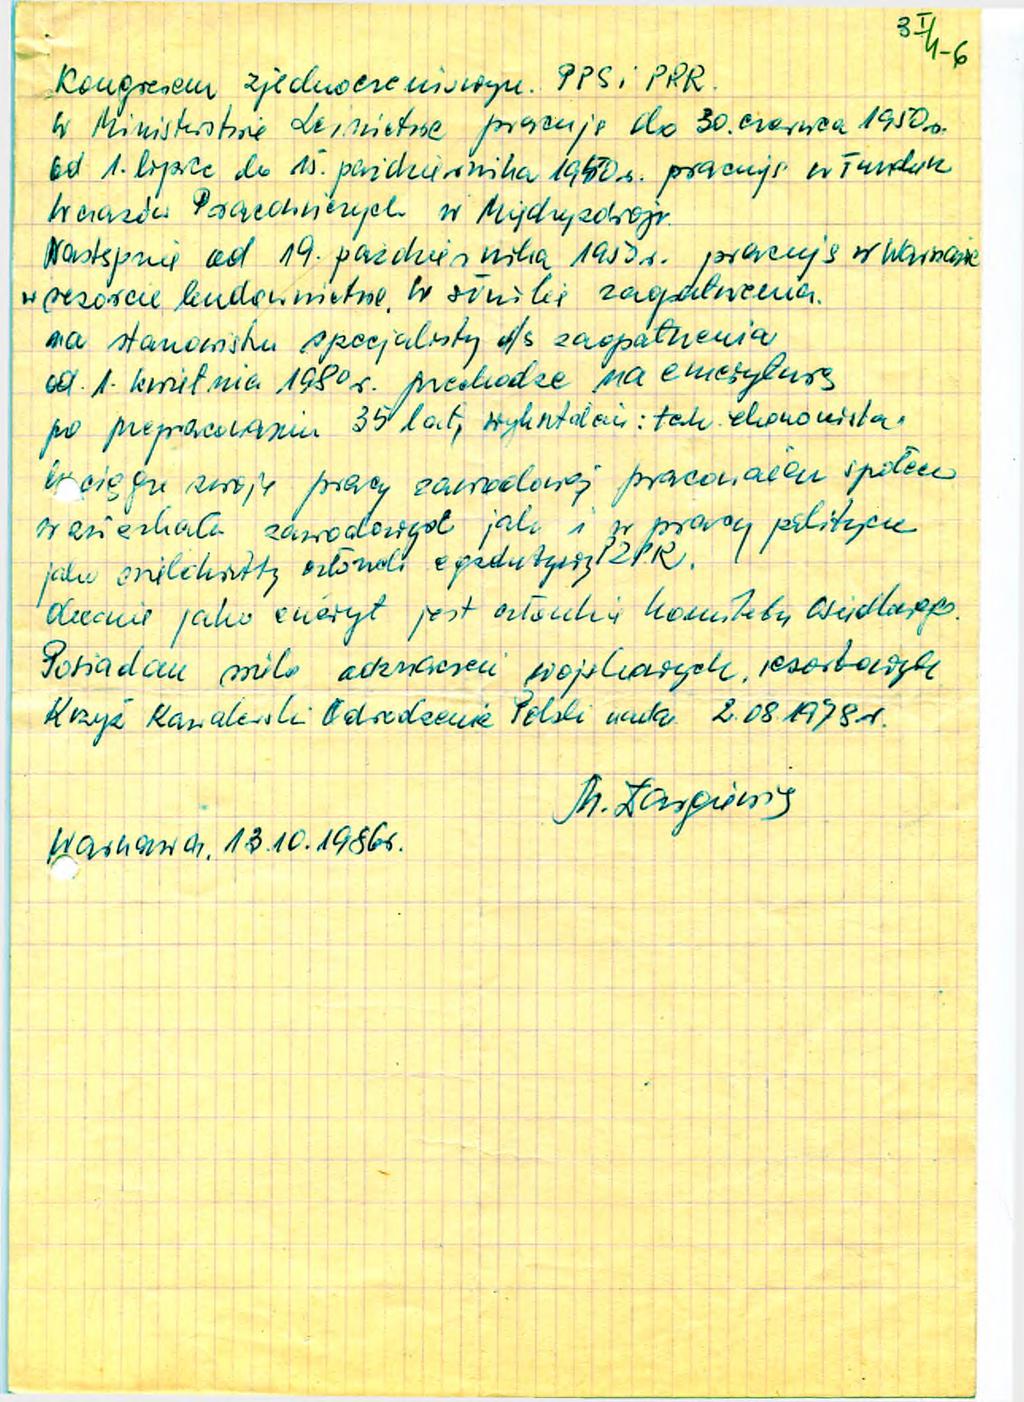 3 I/1-6
Kongresem zjednoczeniowym. PPS i PPR.
W Ministerstwie Leśnictwa pracuję do 30. czerwca 1950 r.
od 1. lipca do 15. października 1950 r. pracuję w Fundusz
Wczasów Pracowniczych w Międzyzdroju.
Następnie od 19. października 1953 r. pracuję w Warszawie
w resorcie budownictwa, w zagadnienia.
na stanowisku specjalisty d/s zaopatrzenia
od. 1. kwietnia 1980 r. przechodzę na emeryturę
po przepracowaniu 35 lat, wykształcen: tech. ekonomista.
W ciągu swojej pracy zawodowej pracowałam społecz
w związkach zawodowych jak i w pracy polityczn
jako członek egzekutywy PZPR.
Obecnie jako emeryt jest członkie Komitetu Osiedlowego.
Posiadam wiele odznaczeń wojskowych, resortowych
Krzyż Kawalerski Odrodzenie Polski 2.08.1978 r.
M.
Warszawa, 13.10.1986 r.